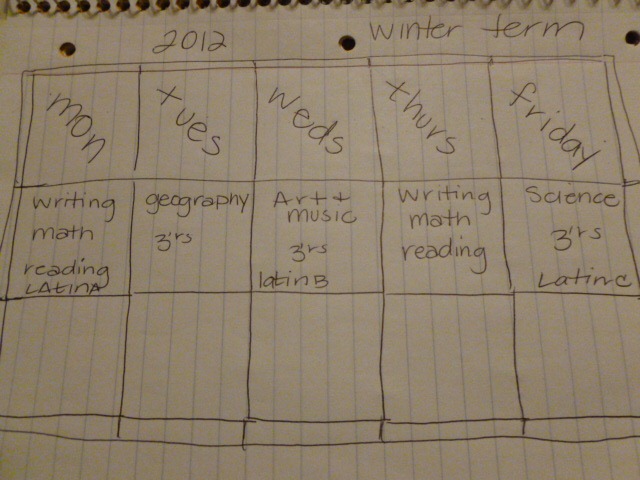 2012 winter term
mon tues weds thurs friday
writing
math
reading
LAtinA
geography
3'rs
Art +
music
3'rs
latinB
Writing
math
reading
Science
3'rs
LatinC